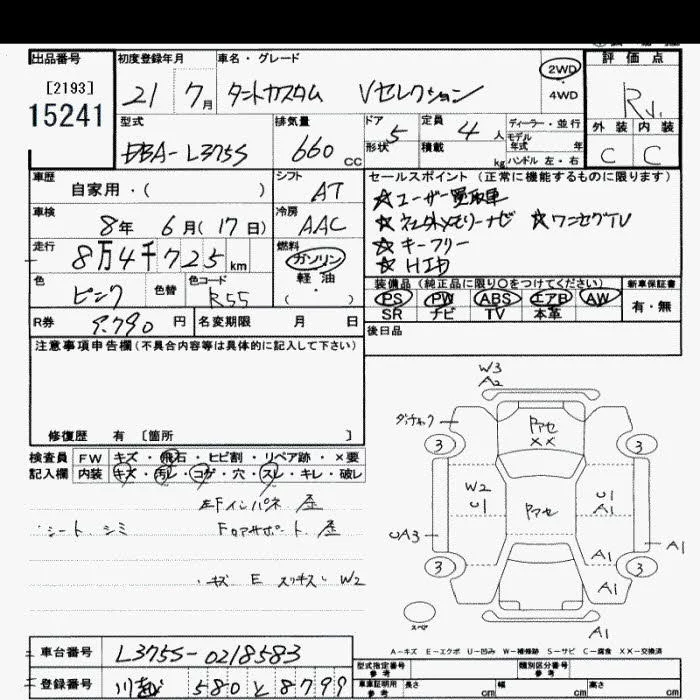 出品番号
[2193]
15241
初度登録年月
21 7月
車名・グレード
タントカスタム Vセレクション
2WD
4WD
評価点
R
外装 内装
C C
型式
DBA-L375S
排気量
660cc
ドア 5
形状
定員 4人
積載 kg
ディーラー・並行
モデル
年式 年
ハンドル 左・右
車歴
自家用・( )
シフト
AT
車検
8年 6月(17日)
冷房
AAC
走行
8万4千725km
燃料
ガソリン
軽油
( ・ )
色
ピンク
色替
色コード
R55
R券 9,790円
名変期限 月 日
セールスポイント (正常に機能するものに限ります)
☆ユーザー買取車
☆ネエガイメモリーナビ ☆ワンセグTV
☆キーフリー
☆HID
装備品 (純正品に限り○をつけてください)
PS PW ABS エアB AW
SR ナビ TV 本革
新車保証書
有・無
後日品
注意事項申告欄(不具合内容等は具体的に記入して下さい)
修復歴 有 [箇所 ]
検査員
記入欄
FW キズ・飛石・ヒビ割・リペア跡・×要
内装 キズ・汚レ・コゲ・穴・スレ・キレ・破レ
左Fインパネ 歪
シート シミ
Fロアサポート 歪
キズ E スリキズ W2
W3
A2
アセ
XX
3 3
W2
U1
アセ
U1
A1
UA3
A1
3 3
A1
A1
スペア
A1
A-キズ E-エクボ U-凹み W-補修跡 S-サビ C-腐食 XX-交換済
車台番号 L375S-0218583
登録番号 川越 580 と 8799
型式指定番号
参考
類別区分番号
参考
車庫証明用
参考
長さ cm 幅 cm 高さ cm